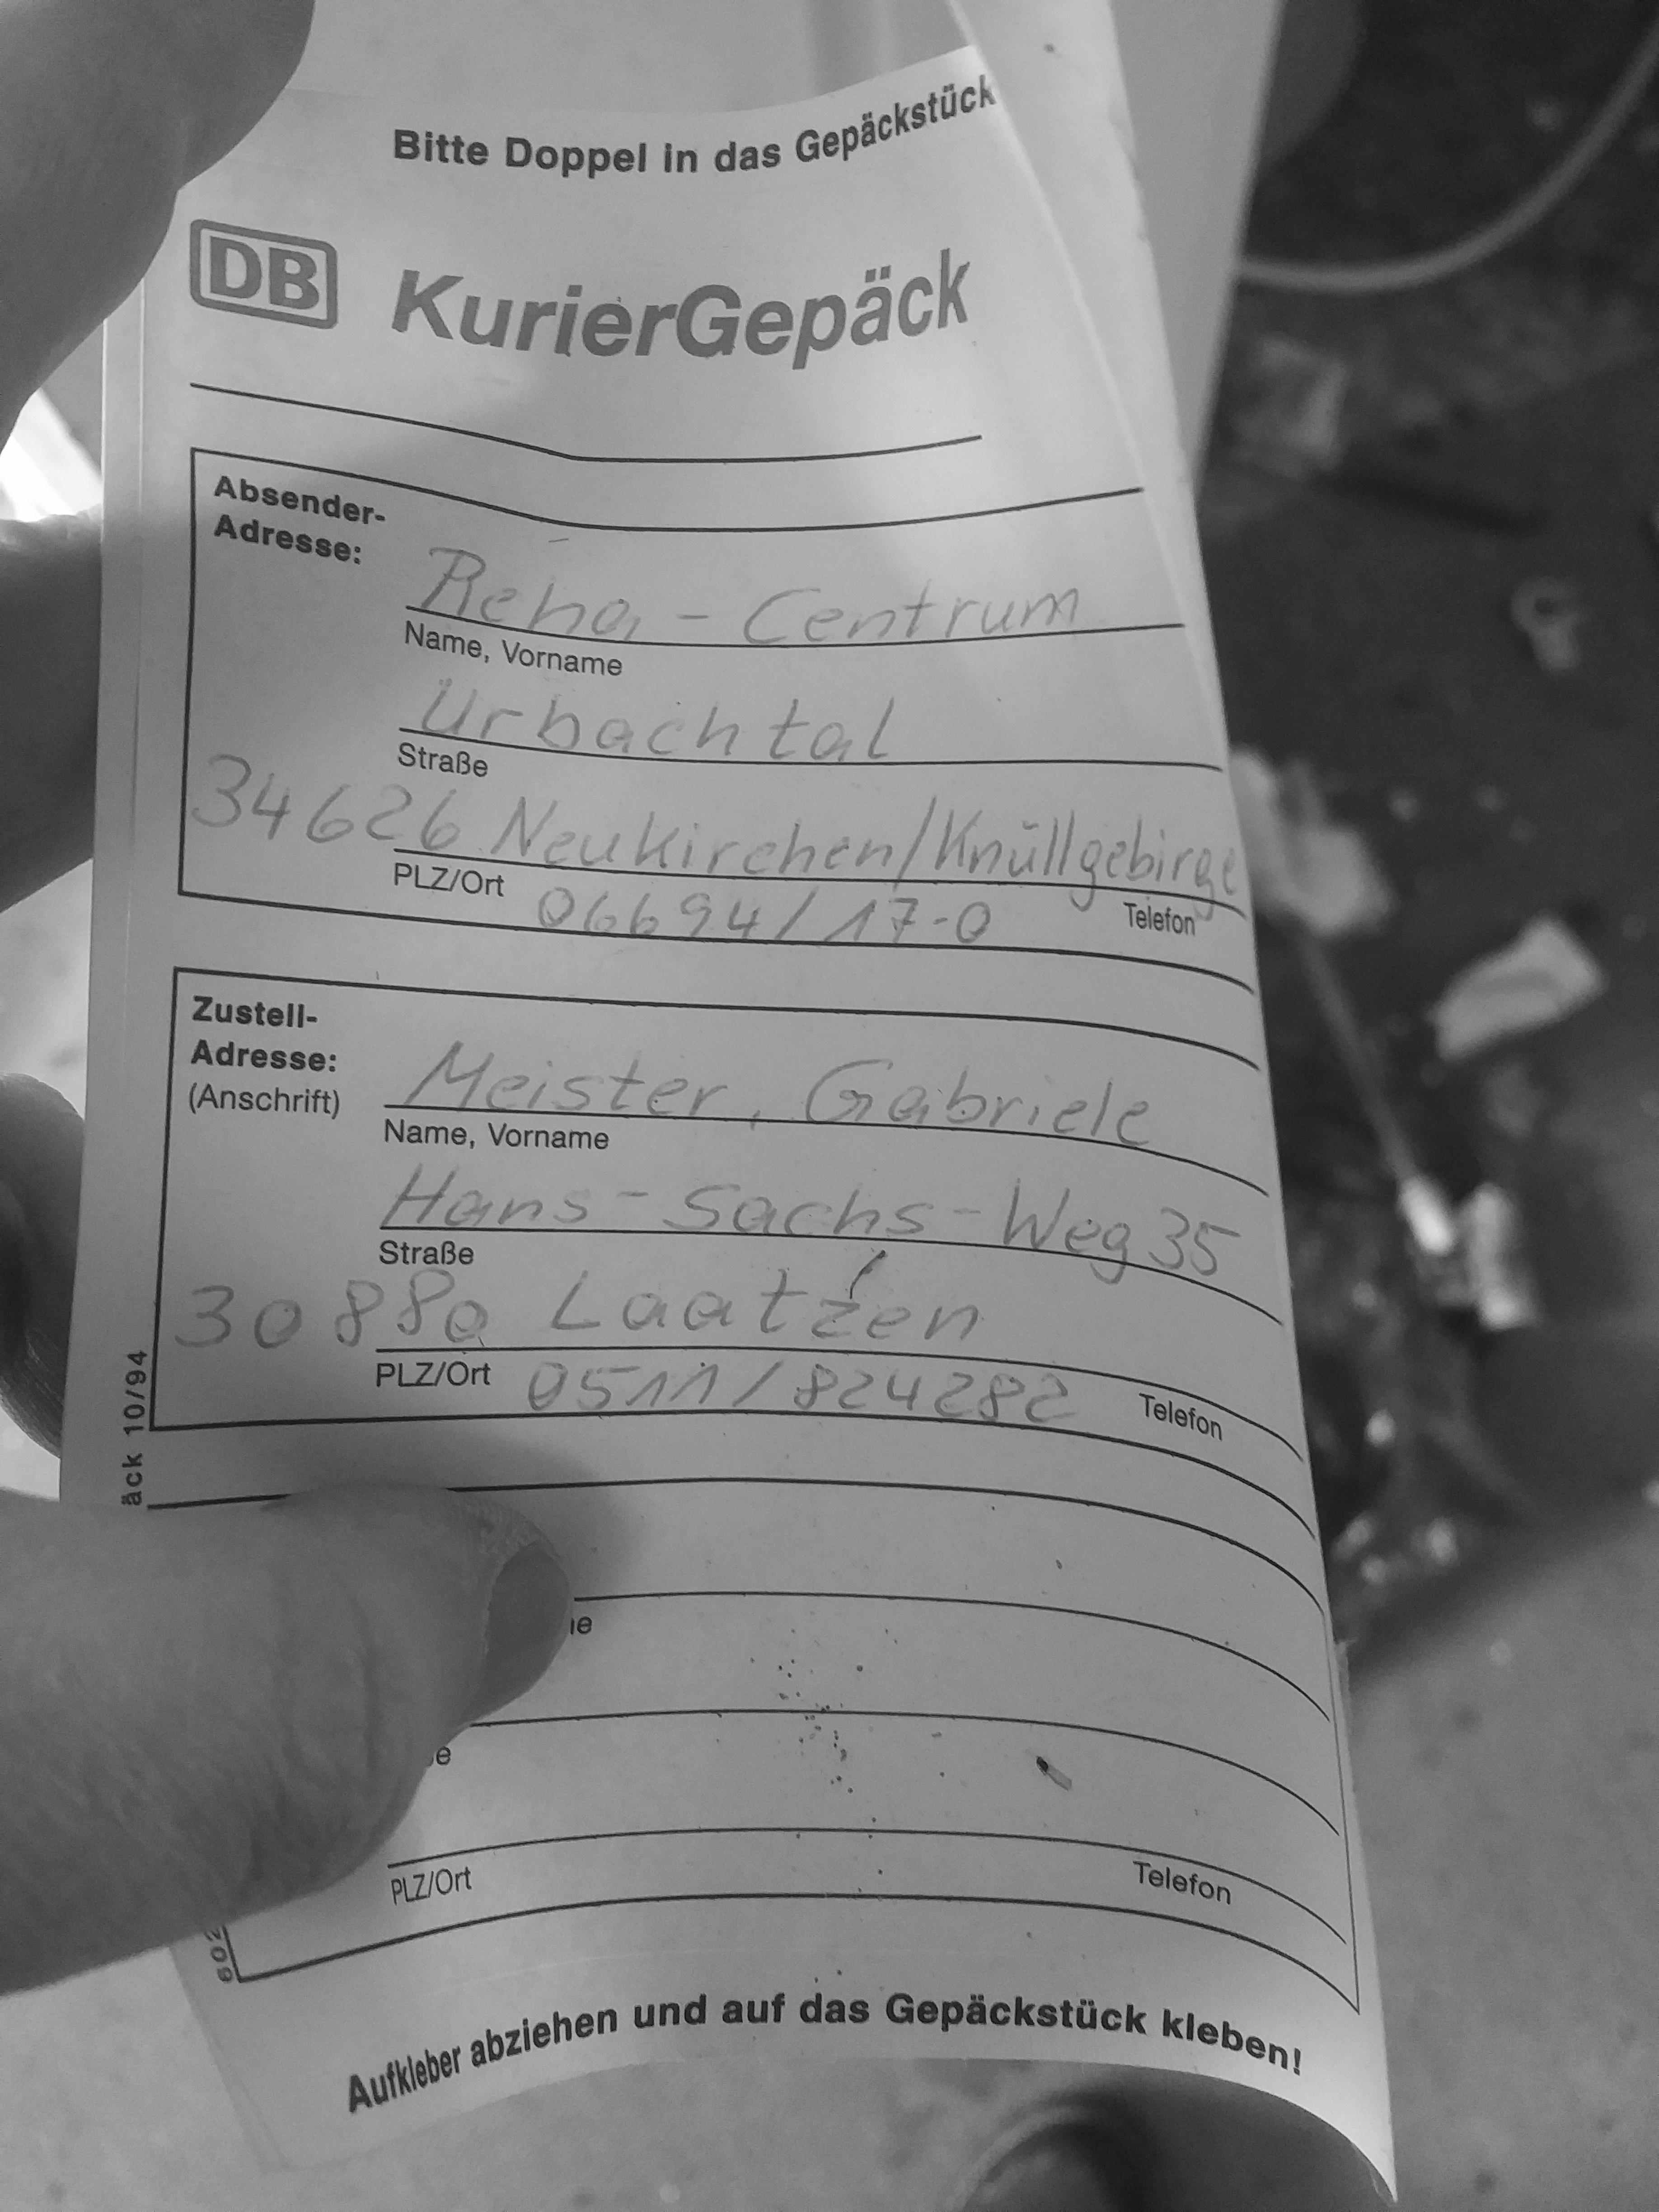 Bitte Doppel in das Gepäckstück
DB KurierGepäck
Absender-
Adresse:
Reha - Centrum
Name, Vorname
Urbachtal
Straße
34626 Neukirchen/Knüllgebirge
PLZ/Ort
06694/17-0
Telefon
Zustell-
Adresse:
(Anschrift)
Meister, Gabriele
Name, Vorname
Hans-Sachs-Weg 35
Straße
30880 Laatzen
PLZ/Ort
0511/824282
Telefon
äck 10/94
PLZ/Ort
Telefon
602
Aufkleber abziehen und auf das Gepäckstück kleben!